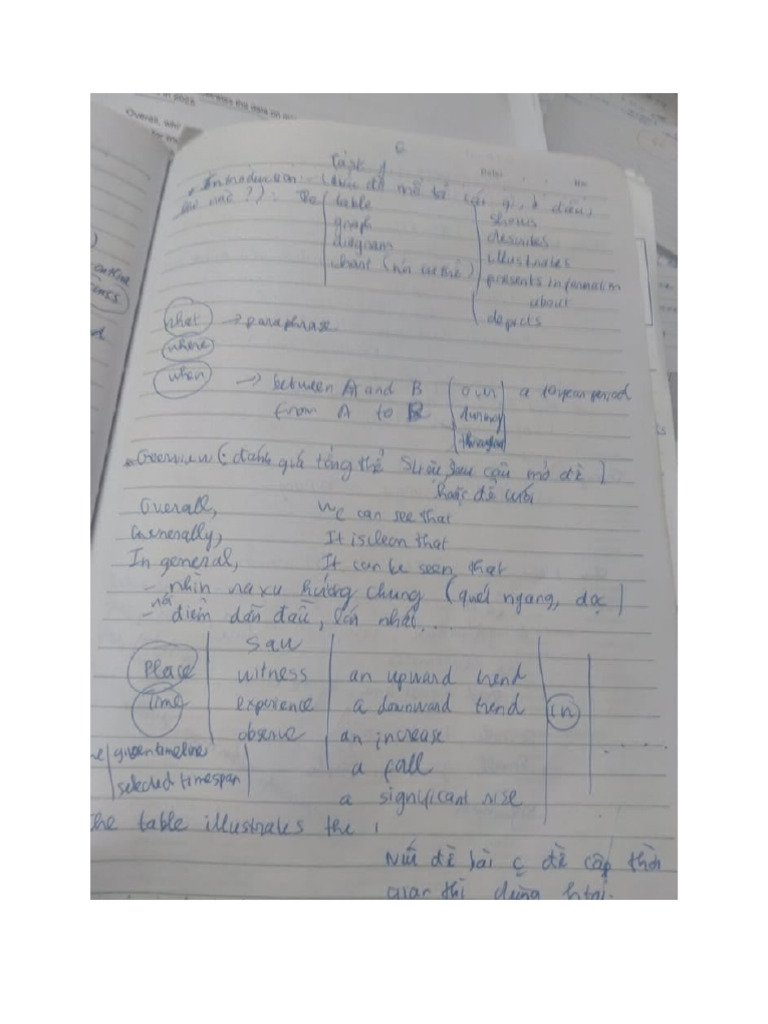 in 2028
Overall, whi
6
Task 1
Date: No
* Introduction: (biểu đồ mô tả cái gì, ở đâu,
thế nào?): The | table | shows
graph | describes
diagram | illustrates
chart (nói cụ thể) | presents information
about
depicts
what -> paraphrase
where
when -> between A and B | over | a 10 year period
from A to B | during
throughout
* Overview (: đánh giá tổng thể sau câu mở đề
hoặc để cuối
Overall, We can see that
Gernerally, It is clean that
In general, It can be seen that
- nhìn ra xu hướng chung (quét ngang, dọc)
- nói điểm dẫn đầu, lớn nhất...
saw
Place | witness | an upward trend
Time | experience | a downward trend | in
observe | an increase
given timeline
a fall
selected timespan
a significant rise
the table illustrates the
Nếu đề bài c đề cập thời
gian thì dùng htại.